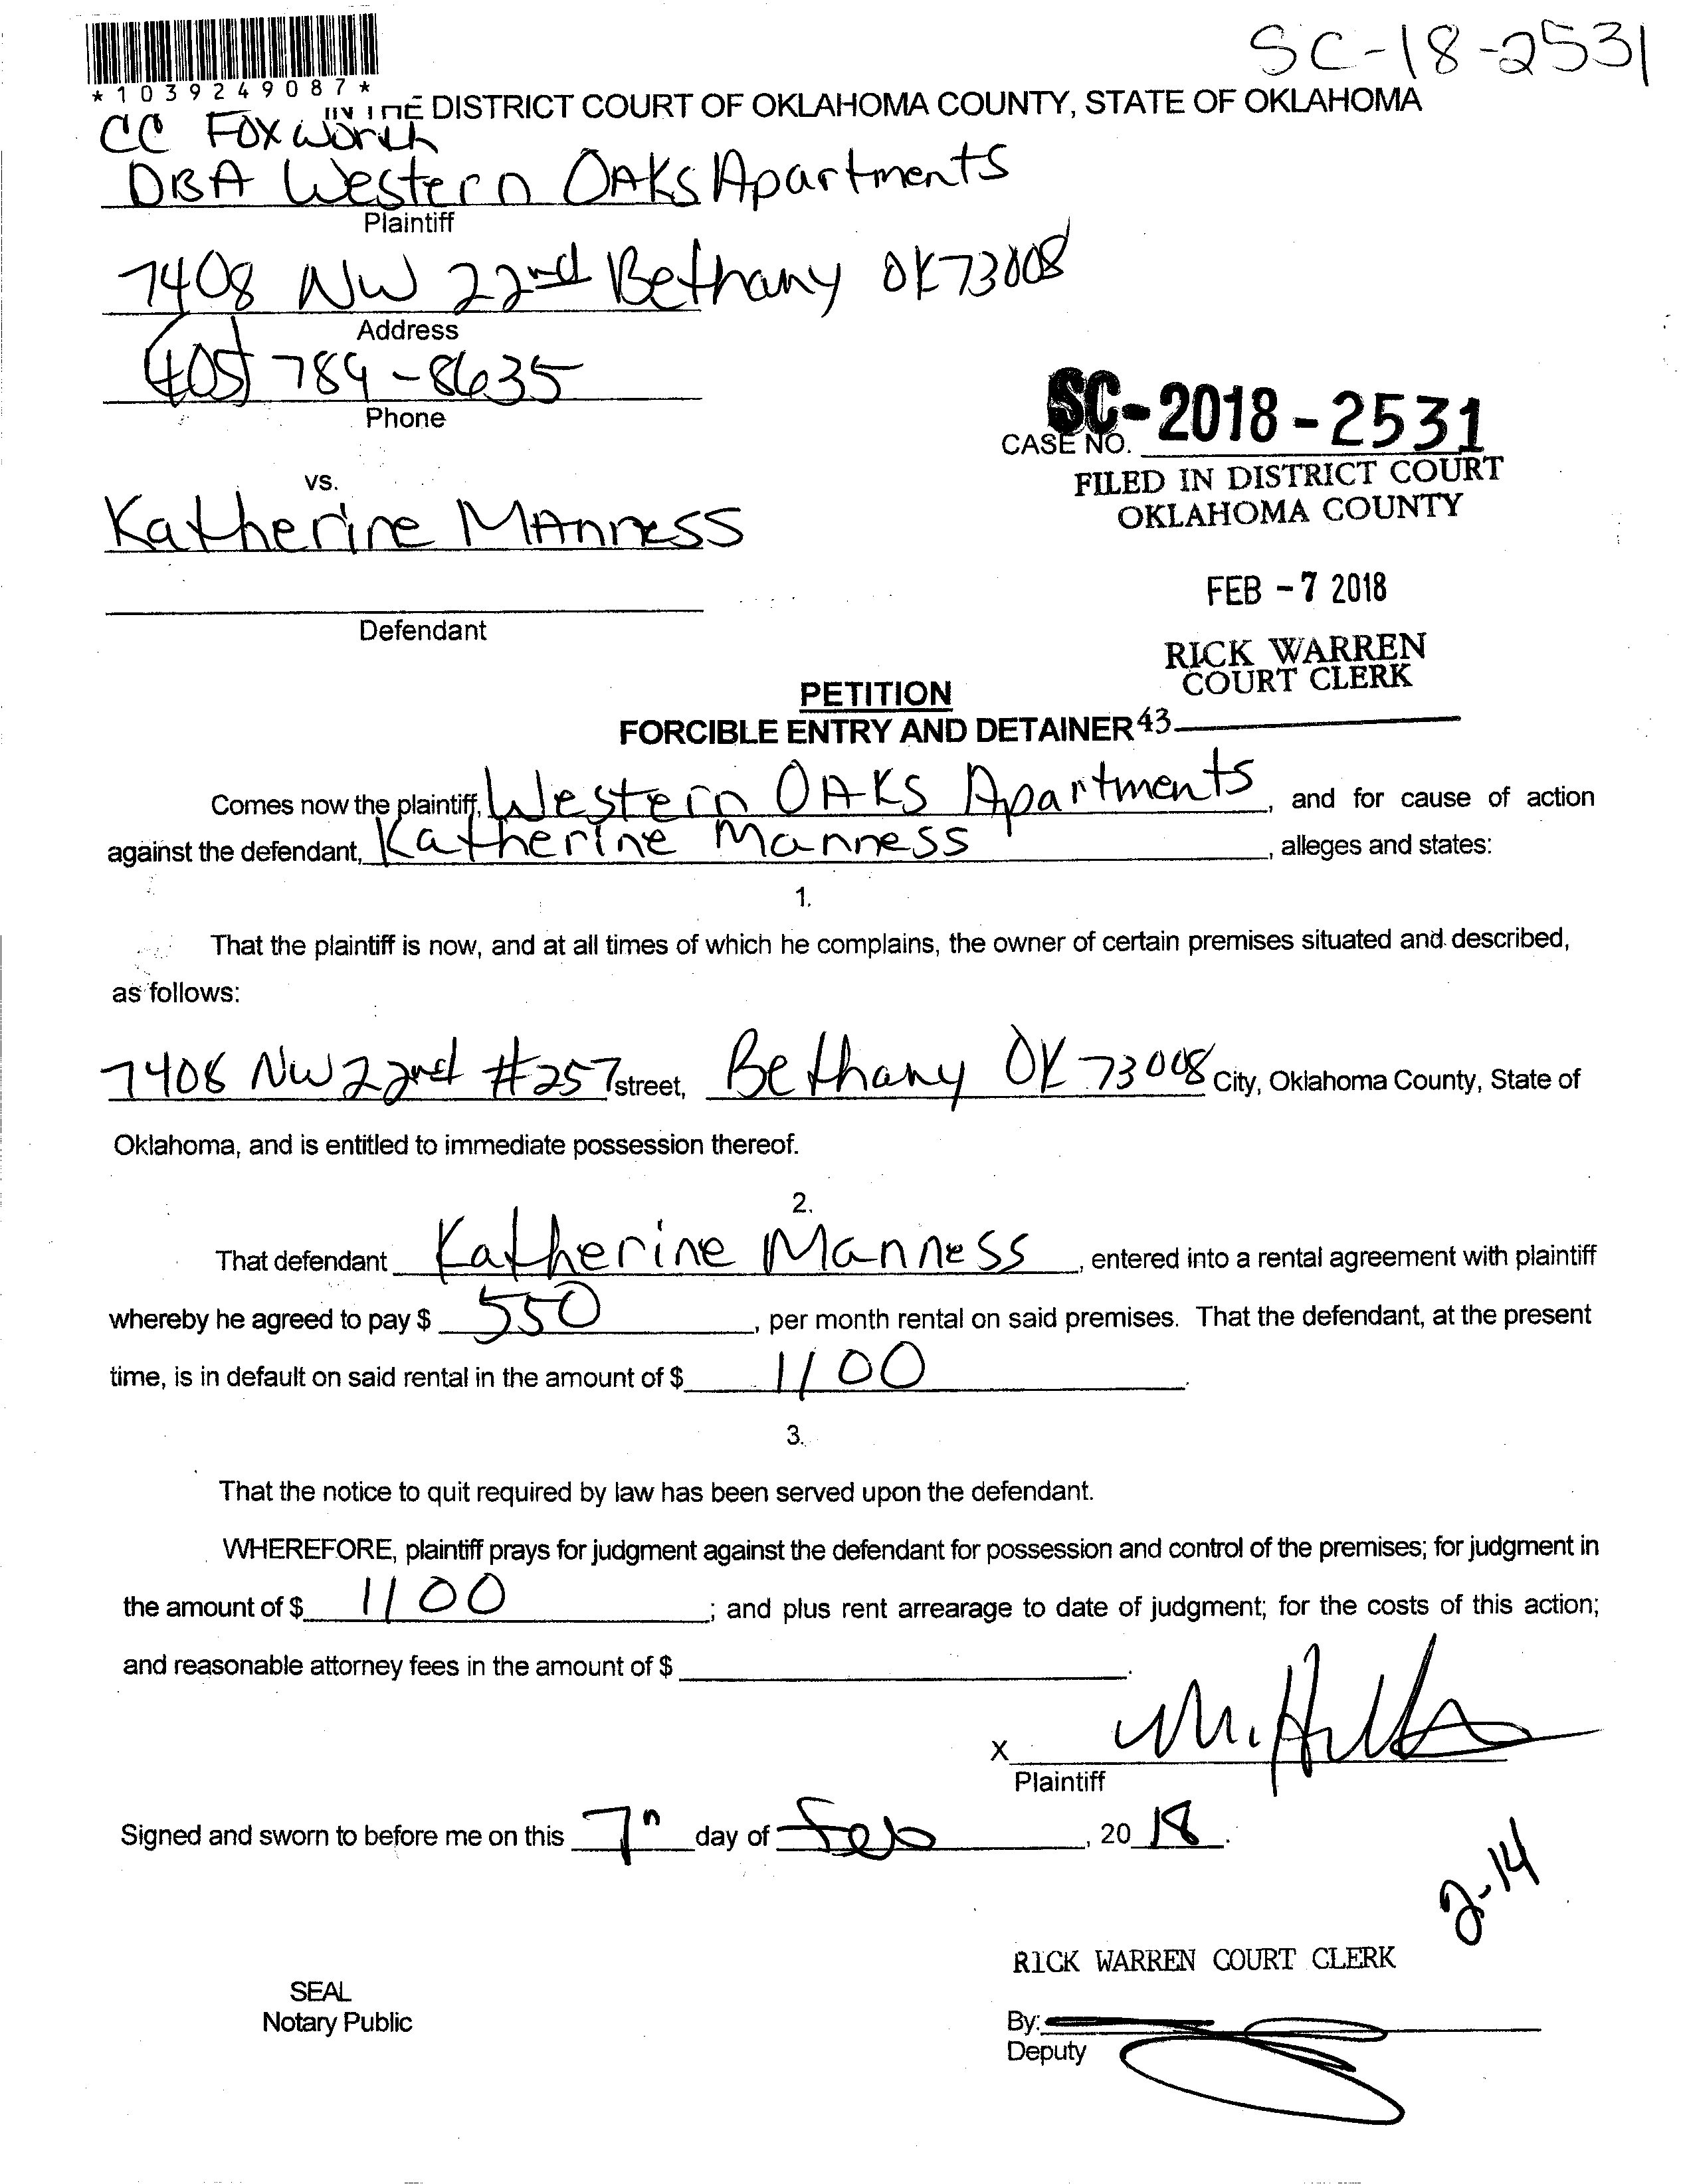 SC-18-2531
*1039249087*
IN THE DISTRICT COURT OF OKLAHOMA COUNTY, STATE OF OKLAHOMA
CC Foxworth
DBA Western OAKS Apartments
Plaintiff
7408 NW 22nd Bethany OK 73008
Address
(405) 789-8635
Phone
SC-2018-2531
CASE NO.
FILED IN DISTRICT COURT
OKLAHOMA COUNTY
vs.
Katherine MAnness
FEB -7 2018
Defendant
RICK WARREN
COURT CLERK
PETITION
FORCIBLE ENTRY AND DETAINER 43
Comes now the plaintiff, Western OAKS Apartments, and for cause of action
against the defendant, Katherine Manness, alleges and states:
1.
That the plaintiff is now, and at all times of which he complains, the owner of certain premises situated and described,
as follows:
7408 NW 22nd #257 street, Bethany OK 73008 City, Oklahoma County, State of
Oklahoma, and is entitled to immediate possession thereof.
2.
That defendant Katherine Manness, entered into a rental agreement with plaintiff
whereby he agreed to pay $ 550, per month rental on said premises. That the defendant, at the present
time, is in default on said rental in the amount of $ 1100.
3.
That the notice to quit required by law has been served upon the defendant.
WHEREFORE, plaintiff prays for judgment against the defendant for possession and control of the premises; for judgment in
the amount of $ 1100; and plus rent arrearage to date of judgment; for the costs of this action;
and reasonable attorney fees in the amount of $ .
X
Plaintiff
Signed and sworn to before me on this 7th day of Feb, 2018.
2-14
RICK WARREN COURT CLERK
SEAL
Notary Public
By:
Deputy